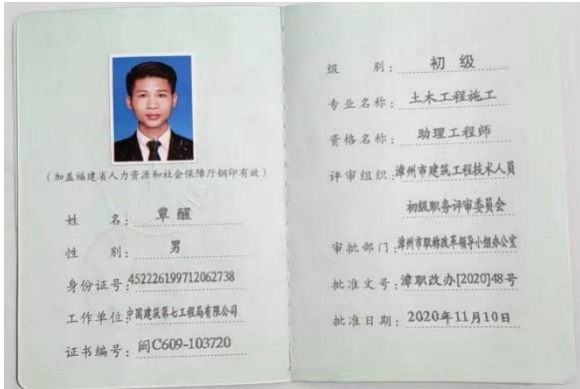 (加盖福建省人力资源和社会保障厅钢印有效)
姓 名: 覃醒
性 别: 男
身份证号: 452226199712062738
工作单位: 中国建筑第七工程局有限公司
证书编号: 闽C609-103720
级 别: 初 级
专业名称: 土木工程施工
资格名称: 助理工程师
评审组织: 漳州市建筑工程技术人员
初级职务评审委员会
审批部门: 漳州市职称改革领导小组办公室
批准文号: 漳职改办[2020]48号
批准日期: 2020年11月10日